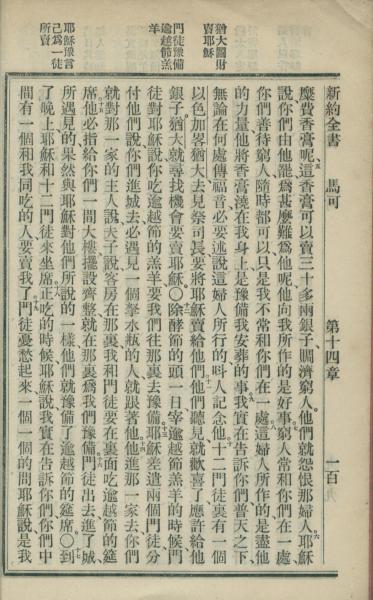 新約全書 馬可 第十四章 一百九
猶大圖財
賣耶穌
門徒豫備
逾越節羔
羊
耶穌豫言
己爲一徒
所賣
糜費香膏呢五這香膏可以賣三十多兩銀子賙濟窮人他們就怨恨那婦人六耶穌
說你們由他罷爲甚麽難爲他呢他向我所作的是好事七窮人常和你們在一處
你們善待窮人隨時都可以只是我不常和你們在一處八這婦人所作的是盡他
的力量他將香膏澆在我身上是豫備我安葬的事九我實在告訴你們普天之下
無論在何處傳福音必要述說這婦人所行的呌人記念他十十二門徒裏有一個
以色加畧猶大去見祭司長要將耶穌賣給他們十一他們聽見就歡喜了應許給他
銀子猶大就尋找機會要賣耶穌〇十二除酵節的頭一日宰逾越節羔羊的時候門
徒對耶穌說你吃逾越節的羔羊要我們往那裏去豫備十三耶穌差遣兩個門徒分
付他們說你們進城去必遇見一個拏水瓶的人就跟著他十四他進那一家去你們
就對那一家的主人說夫子說客房在那裏我和門徒要在裏面吃逾越節的筵
席十五他必指給你們一間大樓擺設齊整就在那裏爲我們豫備十六門徒出去進了城
所遇見的果然與耶穌對他們所說的一樣他們就豫備了逾越節的筵席〇十七到
了晚上耶穌和十二門徒來十八坐席正吃的時候耶穌說我實在告訴你們你們中
間有一個和我同吃的人要賣我了十九門徒憂愁起來一個一個的問耶穌說是我